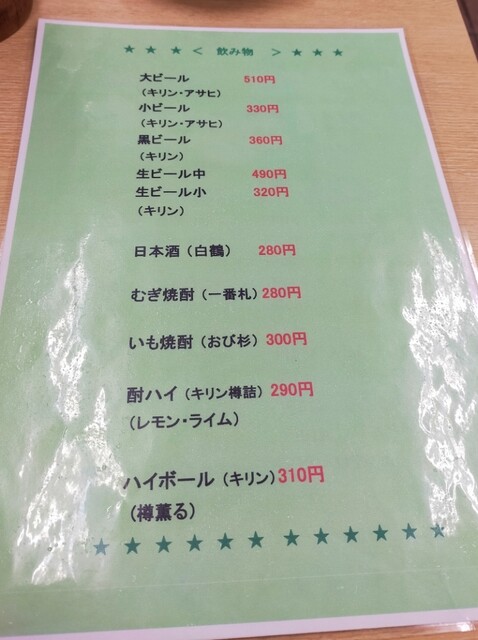 ★ ★ ★ < 飲み物 > ★ ★ ★
大ビール 510円
（キリン・アサヒ）
小ビール 330円
（キリン・アサヒ）
黒ビール 360円
（キリン）
生ビール中 490円
生ビール小 320円
（キリン）
日本酒（白鶴） 280円
むぎ焼酎（一番札）280円
いも焼酎（おび杉）300円
酎ハイ（キリン樽詰）290円
（レモン・ライム）
ハイボール（キリン）310円
（樽薫る）
★ ★ ★ ★ ★ ★ ★ ★ ★ ★ ★ ★